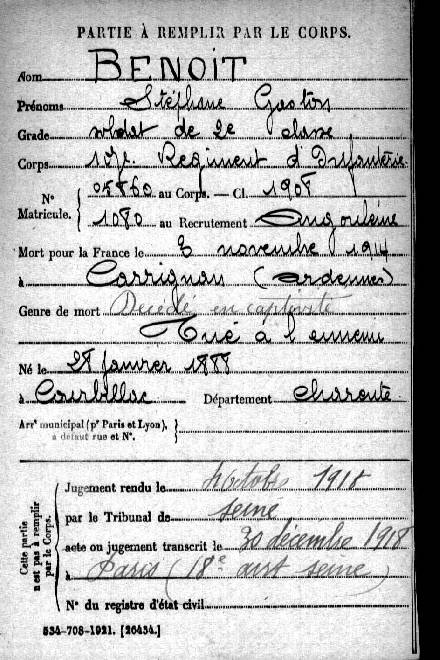 PARTIE À REMPLIR PAR LE CORPS.
Nom BENOIT
Prénoms Stéphane Gaston
Grade soldat de 2e classe
Corps 107e Regiment d'Infanterie
N° Matricule. 05560 au Corps. — Cl. 1908
1080 au Recrutement Angoulême
Mort pour la France le 3 novembre 1914
à Carrignan (Ardennes)
Genre de mort Décédé en captivité
Tué à l'ennemi
Né le 28 janvier 1888
à Courbillac Département Charente
Arrt municipal (pr Paris et Lyon), à défaut rue et N°.
Cette partie n'est pas à remplir par le Corps.
Jugement rendu le octobre 1918
par le Tribunal de Seine
acte ou jugement transcrit le 30 décembre 1918
à Paris (18e arrt Seine)
N° du registre d'état civil
534-708-1921. [26434.]